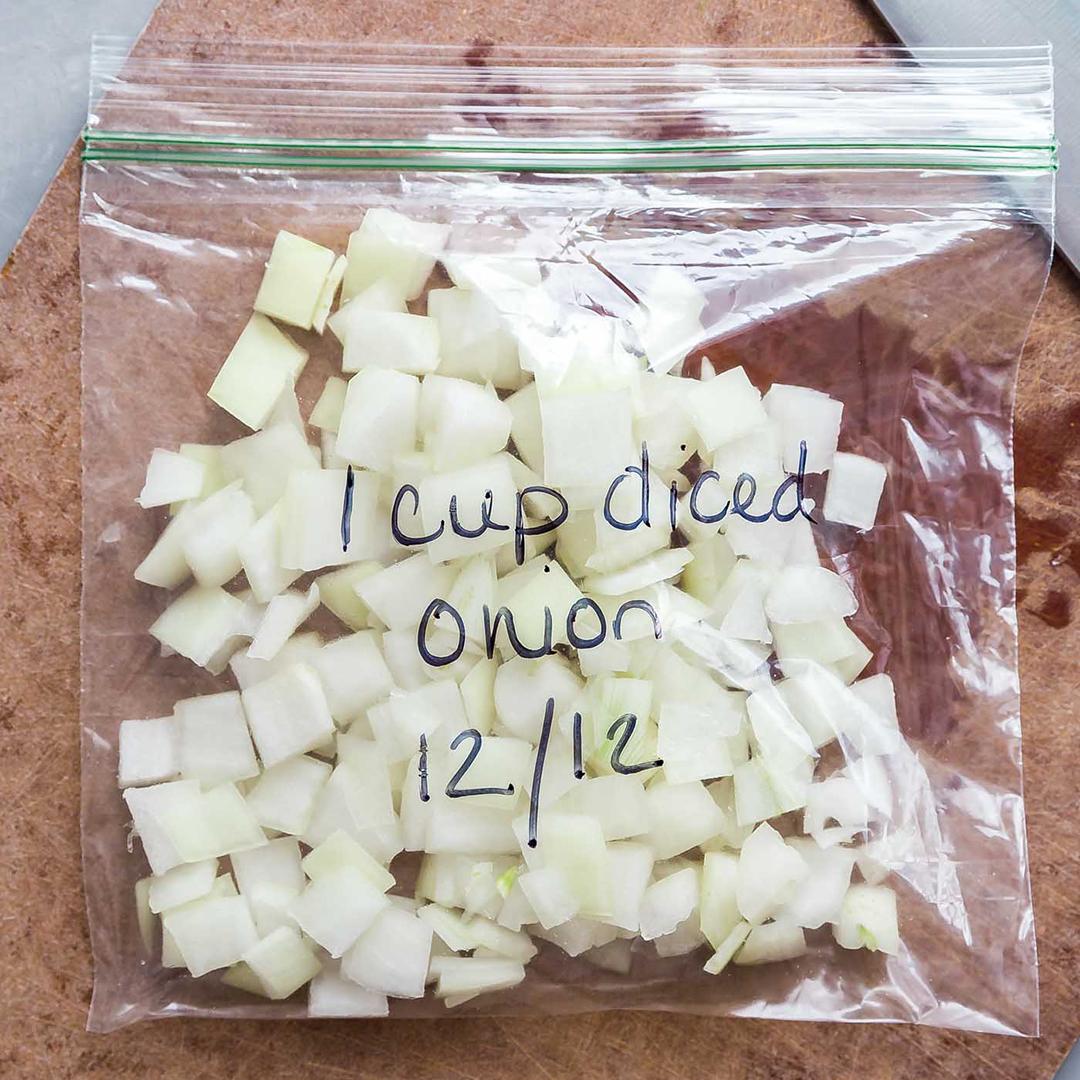 1 cup diced
onion
12/12